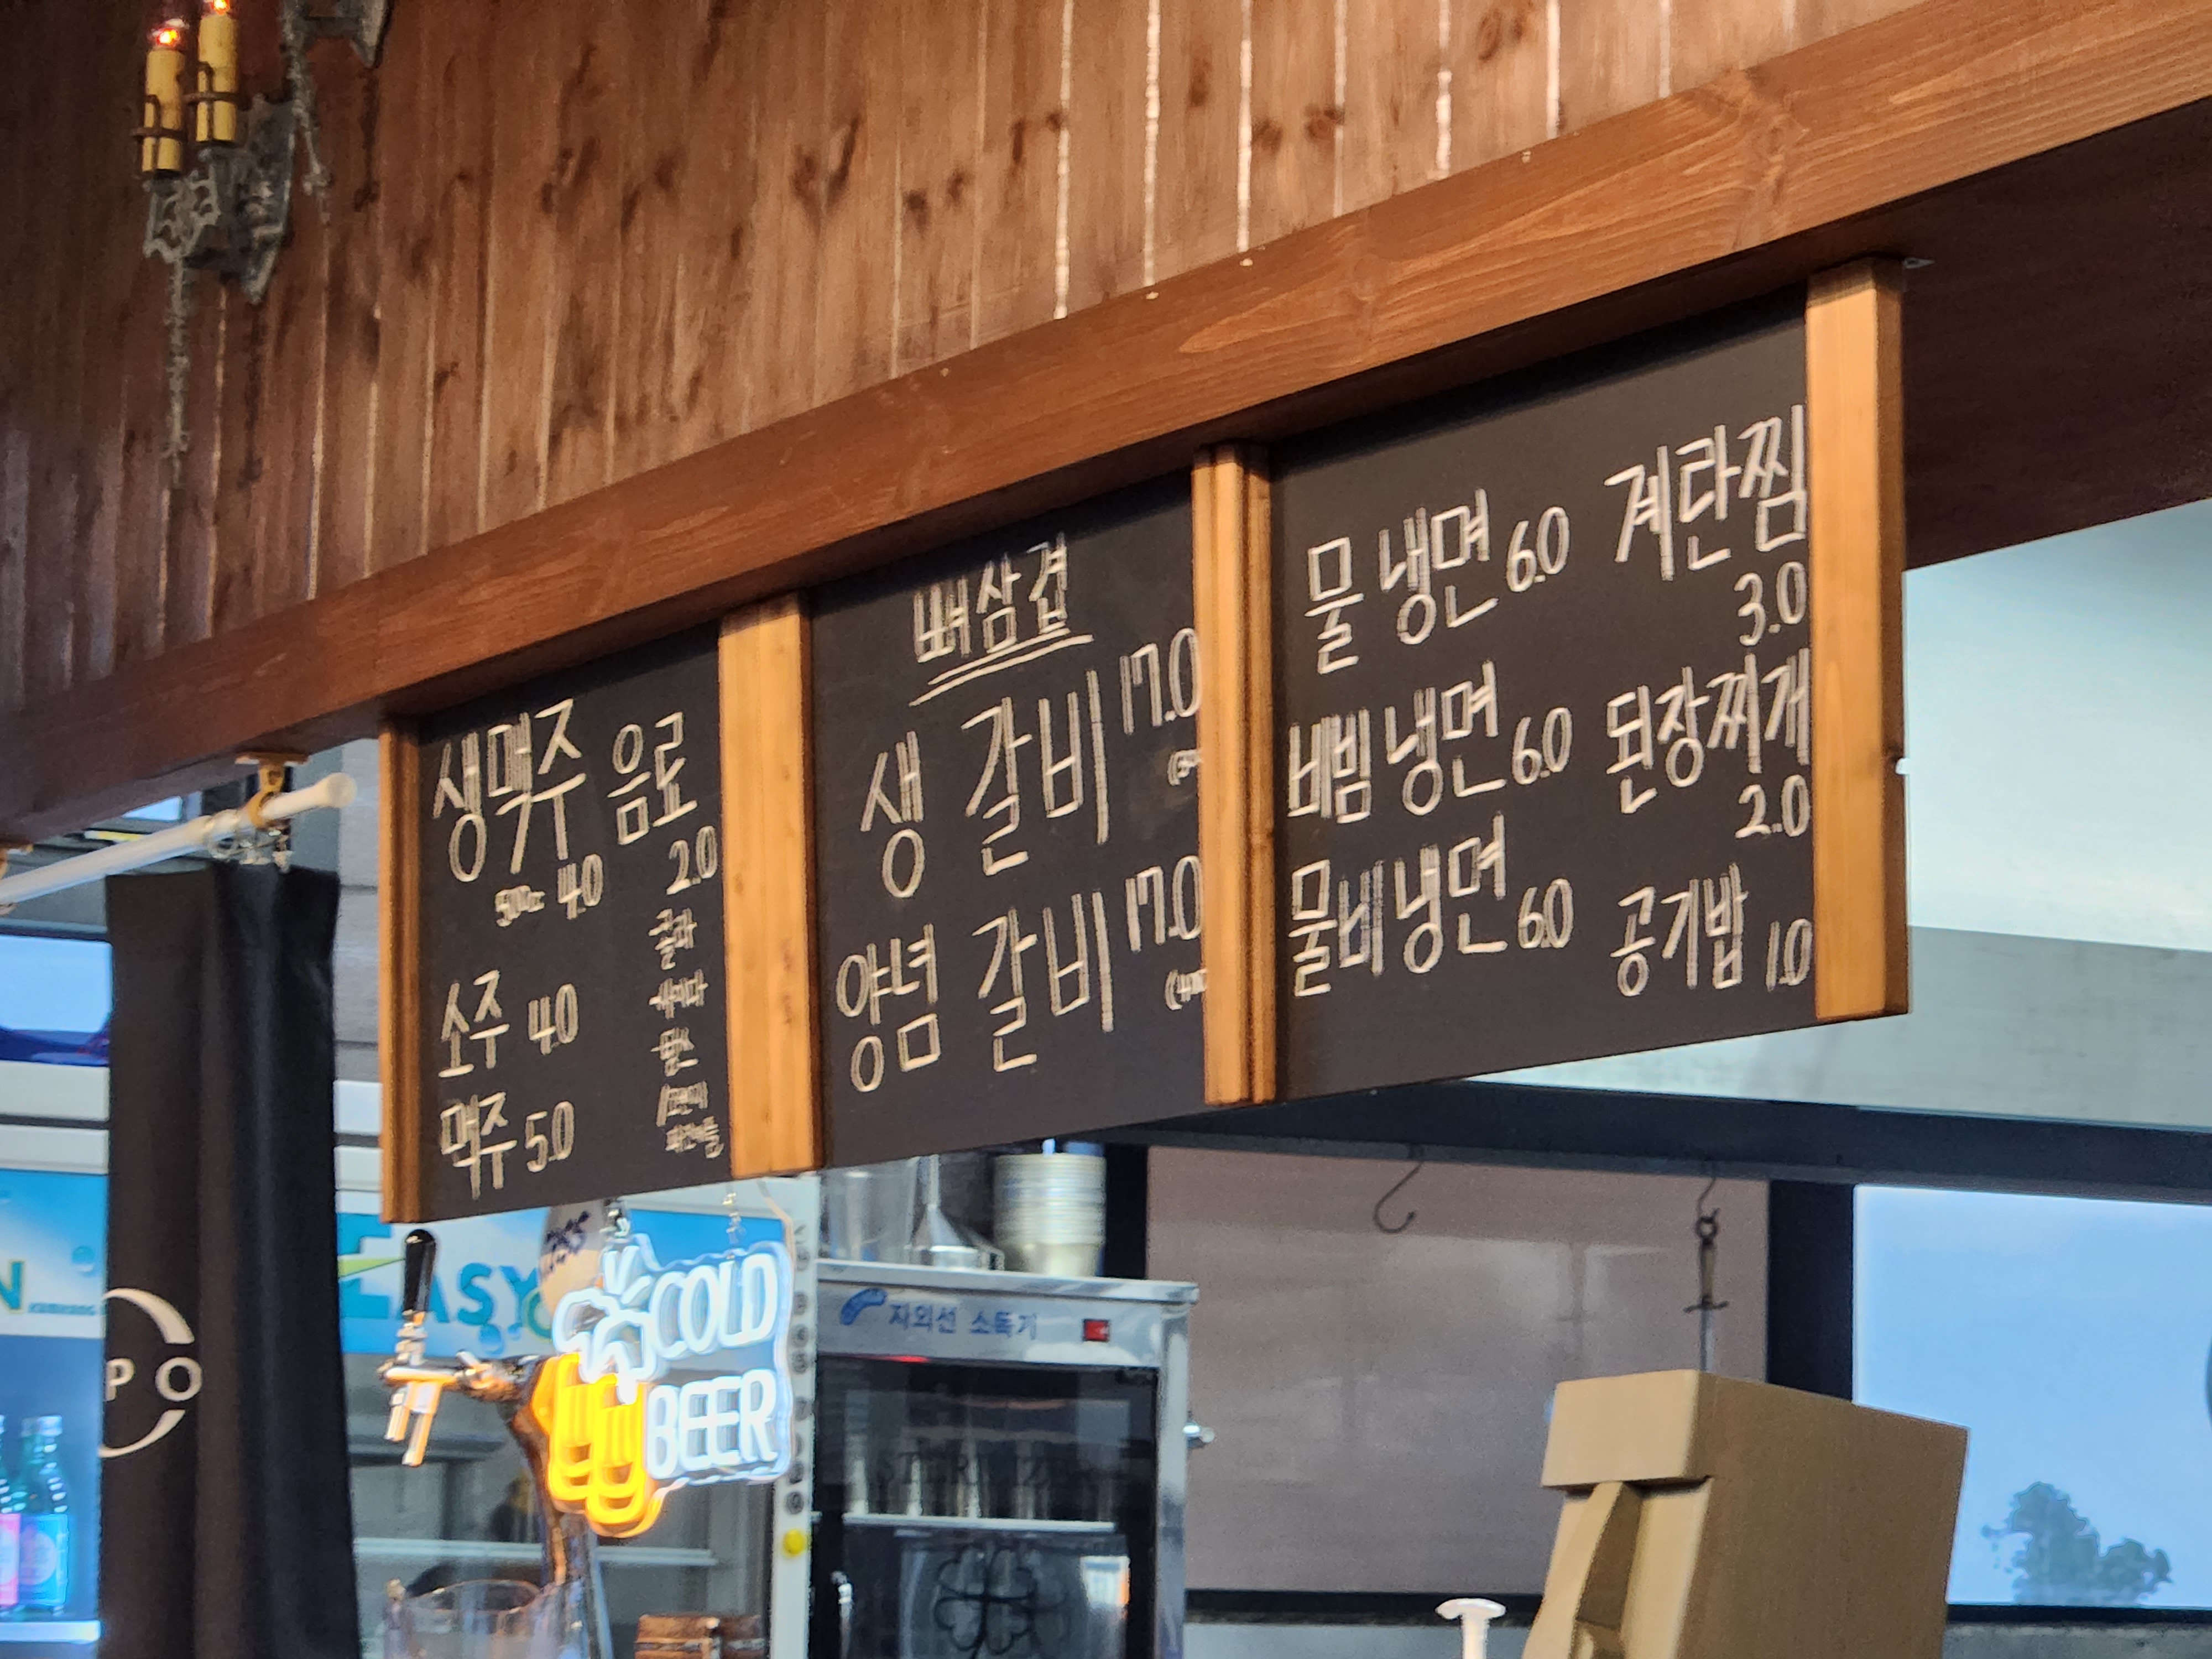 생맥주
500cc 4.0
소주 4.0
맥주 5.0
음료
2.0
콜라
사이다
뼈삼겹
생 갈비 17.0
양념 갈비 17.0
물 냉면 6.0
비빔 냉면 6.0
물비냉면 6.0
계란찜
3.0
된장찌개
2.0
공기밥 1.0
EASY
COLD
BEER
자외선 소독기
PO